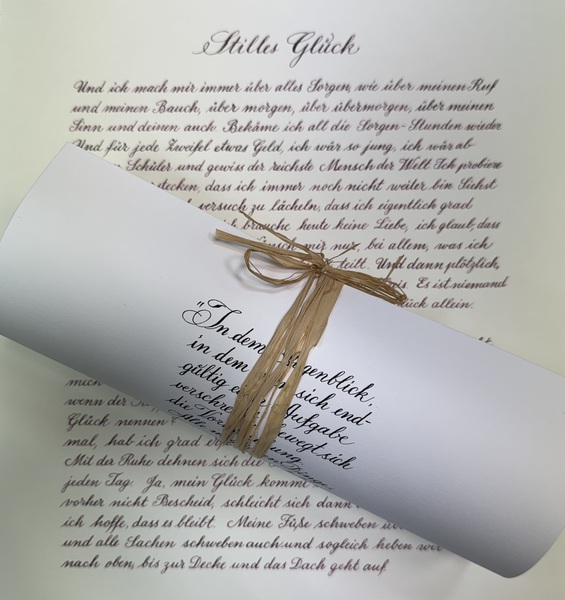 Stilles Glück
Und ich mach mir immer über alles Sorgen, wie über meinen Ruf
und meinen Bauch, über morgen, über übermorgen, über meinen
Sinn und deinen auch. Bekäme ich all die Sorgen-Stunden wieder
Und für jede Zweifel etwas Geld, ich wär so jung, ich wär ab
Schüler und gewiss der reichste Mensch der Welt. Ich probiere
stecken, dass ich immer noch nicht weiter bin Siehst
versuch zu lächeln, dass ich eigentlich grad
ich brauche heute keine Liebe, ich glaub, dass
mir nur, bei allem, was ich
teilt. Und dann plötzlich,
Es ist niemand
allein.
"In dem Augenblick,
in dem sich end-
gültig Aufgabe
bewegt sich
die
mich
wenn der
Glück nennen
mal, hab ich grad
Mit der Ruhe dehnen sich die
jeden Tag. Ja, mein Glück kommt
vorher nicht Bescheid, schleicht sich dann
ich hoffe, dass es bleibt. Meine Füße schweben
und alle Sachen schweben auch und sogleich heben
nach oben, bis zur Decke und das Dach geht auf